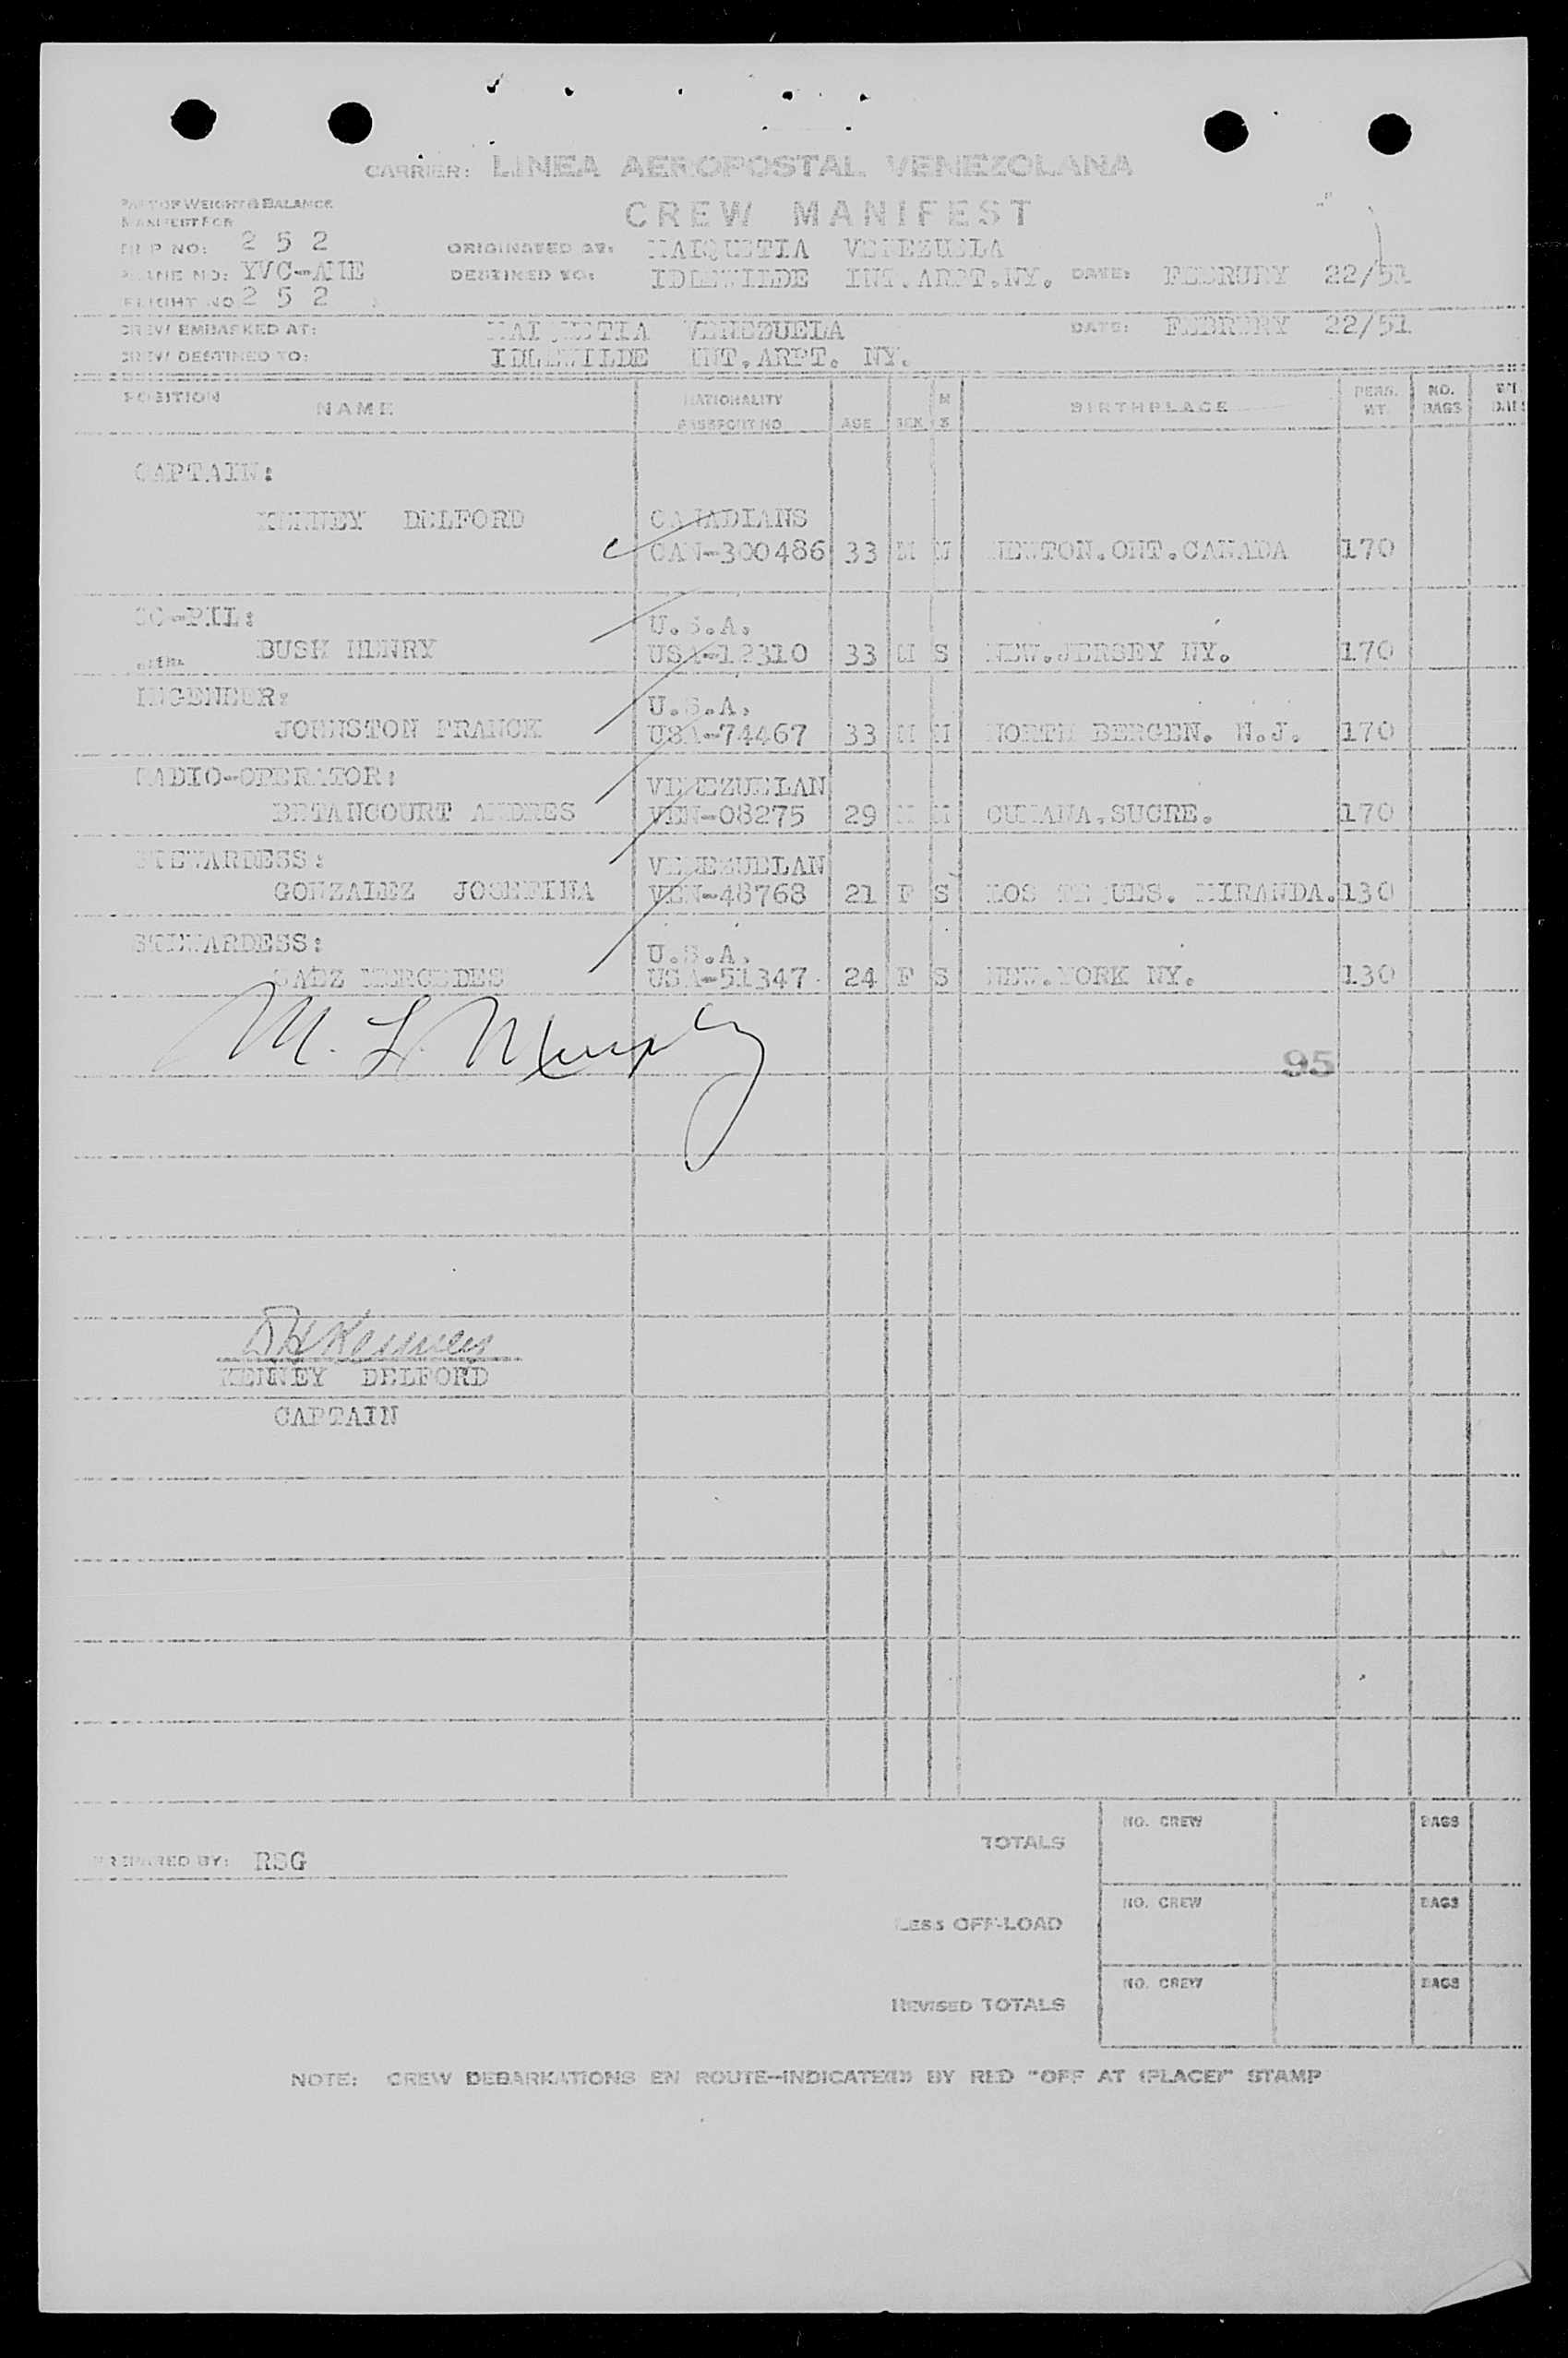 CARRIER: LINEA AEROPOSTAL VENEZOLANA
PART OF WEIGHT & BALANCE
MANIFEST FOR
CREW MANIFEST
TRIP NO: 2 5 2 ORIGINATED AT: MAIQUETIA VENEZUELA
PLANE NO: DESTINED TO: IDLEWILDE INT.ARPT.NY. DATE: FEBRURY 22/51
FLIGHT NO 2 5 2
CREW EMBARKED AT: MAIQUETIA VENEZUELA DATE: FEBRURY 22/51
CREW DESTINED TO: IDLEWILDE INT.ARPT. NY.
POSITION NAME NATIONALITY PASSPORT NO. AGE SEX M S BIRTHPLACE PERS. WT. NO. BAGS WT.
CAPTAIN:
KENNEY DELFORD CANADIANS
CAN-300486 33 M M NEWTON.ONT.CANADA 170
CO-PIL: U.S.A.
BUSH HENRY USA-12310 33 M S NEW.JERSEY NY. 170
INGENEER: U.S.A.
JOHNSTON FRANCK USA-74467 33 M M NORTH BERGEN. N.J. 170
RADIO-OPERATOR: VENEZUELAN
BETANCOURT ANDRES VEN-08275 29 M M CUMANA.SUCRE. 170
STEWARDESS: VENEZUELAN
GONZALEZ JOSEFINA VEN-48768 21 F S LOS TEQUES. MIRANDA. 130
STEWARDESS: U.S.A.
SAEZ MERCEDES USA-51347 24 F S NEW.YORK NY. 130
M. L. Murphy
95
DH Kenney
KENNEY DELFORD
CAPTAIN
PREPARED BY: RSG
TOTALS NO. CREW BAGS
LESS OFF-LOAD NO. CREW BAGS
REVISED TOTALS NO. CREW BAGS
NOTE: CREW DEBARKATIONS EN ROUTE-INDICATED BY RED "OFF AT (PLACE)" STAMP